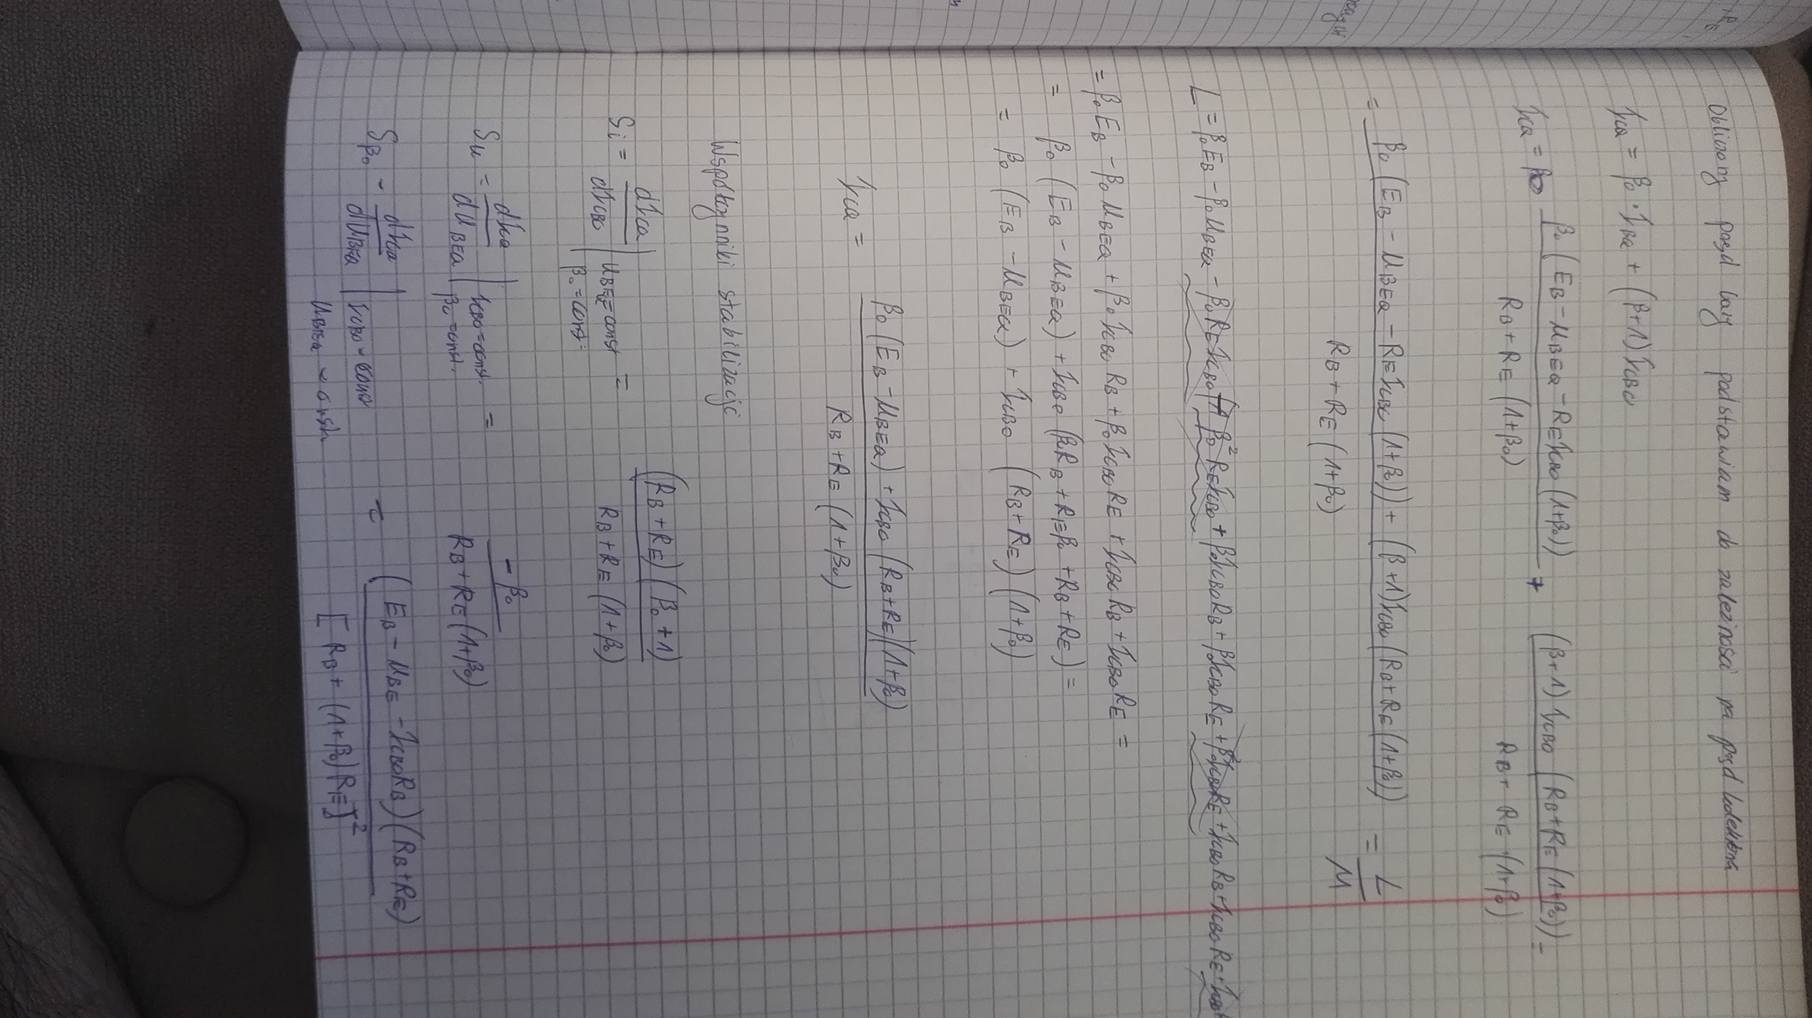 Obliczony prąd bazy podstawiam do zależności na prąd kolektora
I_CQ = β₀ · I_BQ + (β+1) I_CBO
I_CQ = β₀ (E_B − U_BEQ − R_E I_CBO (1+β₀)) / (R_B + R_E (1+β₀)) + (β+1) I_CBO (R_B + R_E (1+β₀)) / (R_B + R_E (1+β₀)) =
= (β₀ (E_B − U_BEQ − R_E I_CBO (1+β₀)) + (β+1) I_CBO (R_B + R_E (1+β₀))) / (R_B + R_E (1+β₀)) = L / M
L = β₀E_B − β₀U_BEQ − β₀R_E I_CBO β₀² R_E I_CBO + β₀I_CBO R_B + β₀I_CBO R_E + β₀² I_CBO R_E + I_CBO R_B + I_CBO R_E + I_CBO
= β₀E_B − β₀U_BEQ + β₀ I_CBO R_B + β₀ I_CBO R_E + I_CBO R_B + I_CBO R_E =
= β₀ (E_B − U_BEQ) + I_CBO (β₀R_B + R_E β₀ + R_B + R_E) =
= β₀ (E_B − U_BEQ) + I_CBO (R_B + R_E) (1+β₀)
I_CQ = (β₀ (E_B − U_BEQ) + I_CBO (R_B + R_E)(1+β₀)) / (R_B + R_E (1+β₀))
Współczynniki stabilizacji
S_i = dI_CQ / dI_CBO | U_BEQ = const β₀ = const = (R_B + R_E) (β₀ + 1) / (R_B + R_E (1+β₀))
S_u = dI_CQ / dU_BEQ | I_CBO = const. β₀ = const. = −β₀ / (R_B + R_E (1+β₀))
S_β₀ = dI_CQ / dU_BEQ | I_CBO = const U_BEQ = const. = (E_B − U_BE − I_CBO R_B) (R_B + R_E) / [R_B + (1+β₀) R_E]²